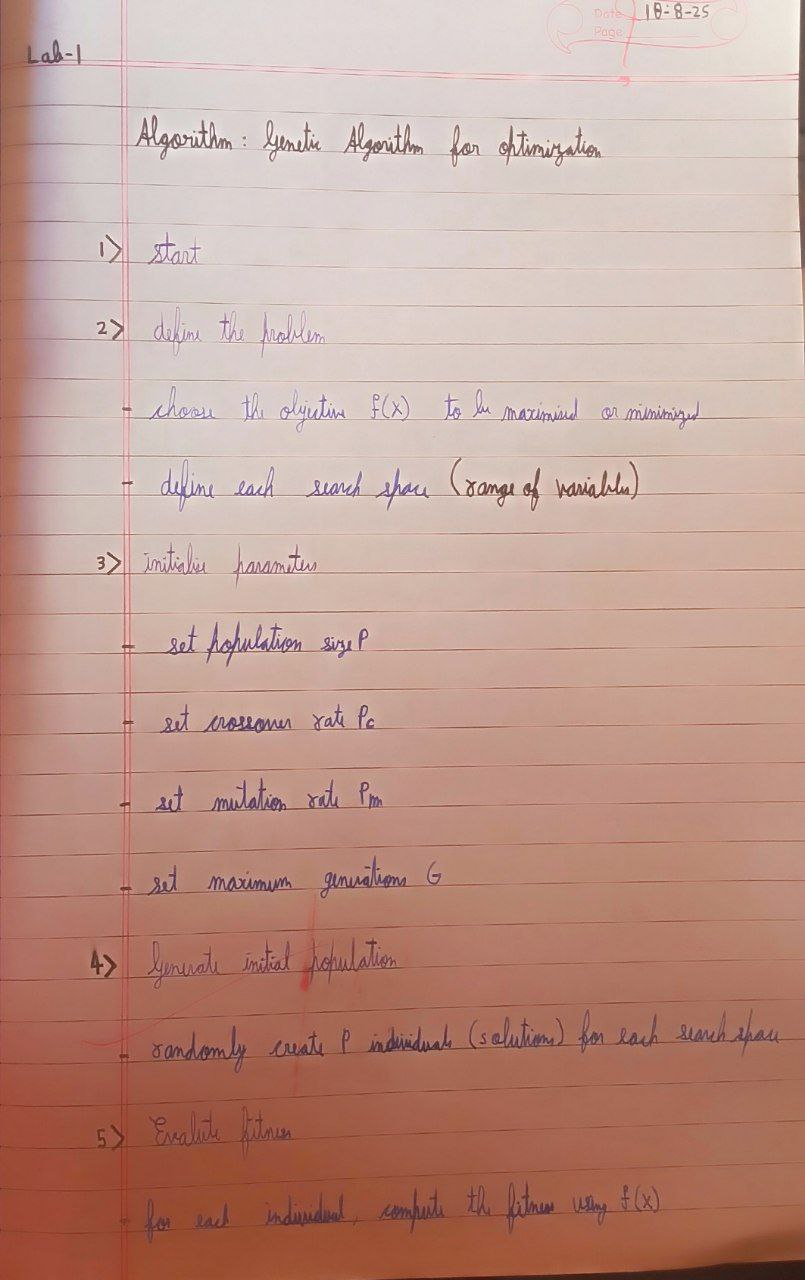 Date 18-8-25
Page
Lab-1
Algorithm: Genetic Algorithm for optimization
1> start
2> define the problem
- choose the objective f(x) to be maximised or minimized
- define each search space (range of variables)
3> initialise parameters
- set population size P
- set crossover rate Pc
- set mutation rate Pm
- set maximum generations G
4> Generate initial population
- randomly create P individuals (solutions) for each search space
5> Evalute fitness
- for each individual, compute the fitness using f(x)